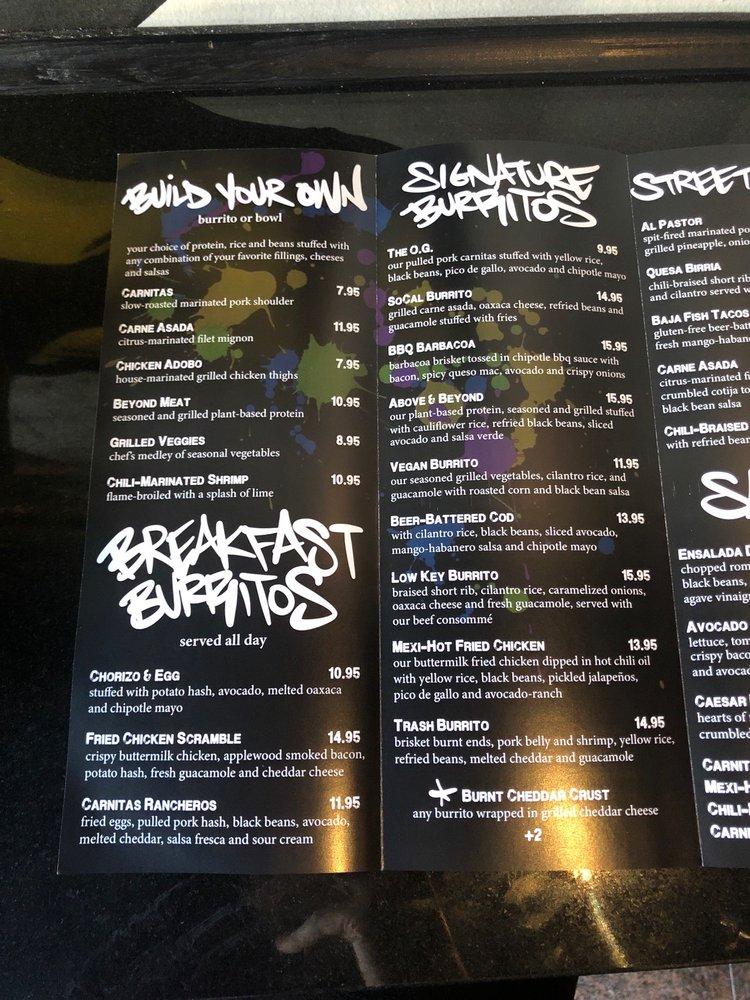 BUILD YOUR OWN
burrito or bowl
your choice of protein, rice and beans stuffed with
any combination of your favorite fillings, cheeses
and salsas
CARNITAS 7.95
slow-roasted marinated pork shoulder
CARNE ASADA 11.95
citrus-marinated filet mignon
CHICKEN ADOBO 7.95
house-marinated grilled chicken thighs
BEYOND MEAT 10.95
seasoned and grilled plant-based protein
GRILLED VEGGIES 8.95
chef's medley of seasonal vegetables
CHILI-MARINATED SHRIMP 10.95
flame-broiled with a splash of lime
BREAKFAST
BURRITOS
served all day
CHORIZO & EGG 10.95
stuffed with potato hash, avocado, melted oaxaca
and chipotle mayo
FRIED CHICKEN SCRAMBLE 14.95
crispy buttermilk chicken, applewood smoked bacon,
potato hash, fresh guacamole and cheddar cheese
CARNITAS RANCHEROS 11.95
fried eggs, pulled pork hash, black beans, avocado,
melted cheddar, salsa fresca and sour cream
SIGNATURE
BURRITOS
THE O.G. 9.95
our pulled pork carnitas stuffed with yellow rice,
black beans, pico de gallo, avocado and chipotle mayo
SOCAL BURRITO 14.95
grilled carne asada, oaxaca cheese, refried beans and
guacamole stuffed with fries
BBQ BARBACOA 15.95
barbacoa brisket tossed in chipotle bbq sauce with
bacon, spicy queso mac, avocado and crispy onions
ABOVE & BEYOND 15.95
our plant-based protein, seasoned and grilled stuffed
with cauliflower rice, refried black beans, sliced
avocado and salsa verde
VEGAN BURRITO 11.95
our seasoned grilled vegetables, cilantro rice, and
guacamole with roasted corn and black bean salsa
BEER-BATTERED COD 13.95
with cilantro rice, black beans, sliced avocado,
mango-habanero salsa and chipotle mayo
LOW KEY BURRITO 15.95
braised short rib, cilantro rice, caramelized onions,
oaxaca cheese and fresh guacamole, served with
our beef consommé
MEXI-HOT FRIED CHICKEN 13.95
our buttermilk fried chicken dipped in hot chili oil
with yellow rice, black beans, pickled jalapeños,
pico de gallo and avocado-ranch
TRASH BURRITO 14.95
brisket burnt ends, pork belly and shrimp, yellow rice,
refried beans, melted cheddar and guacamole
BURNT CHEDDAR CRUST
any burrito wrapped in grilled cheddar cheese
+2
STREET
AL PASTOR
spit-fired marinated
grilled pineapple,
QUESA BIRRIA
chili-braised short rib
and cilantro served
BAJA FISH TACOS
gluten-free
fresh
CARNE ASADA
citrus-marinated
crumbled cotija
black bean salsa
CHILI-BRAISED
with refried
ENSALADA
chopped
black beans,
agave
AVOCADO
lettuce,
crispy
and
CAESAR
hearts of
crumbled